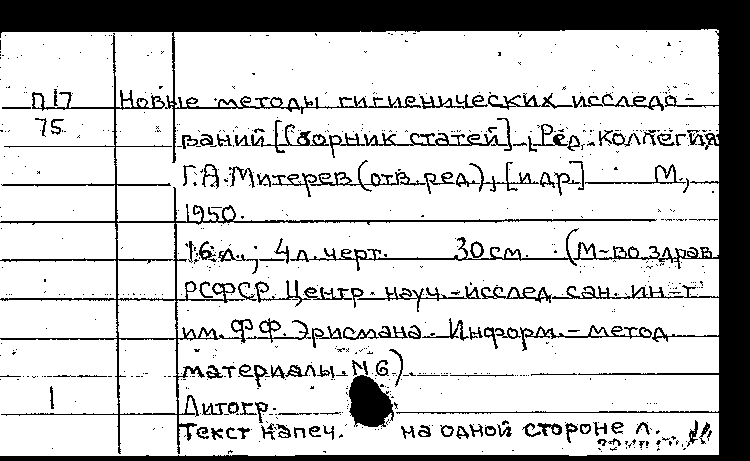 П17 Новые методы гигиенических исследо-
75 ваний [Сборник статей]. Ред. коллегия
Г.А.Митерев (отв. ред.), [и др.] М.,
1950.
16 л.; 4 л. черт. 30 см. (М-во здрав.
РСФСР. Центр. науч.-исслед. сан. ин-т
им. Ф.Ф. Эрисмана. Информ.-метод.
материалы. N 6).
1 Литогр.
Текст напеч. на одной стороне л.